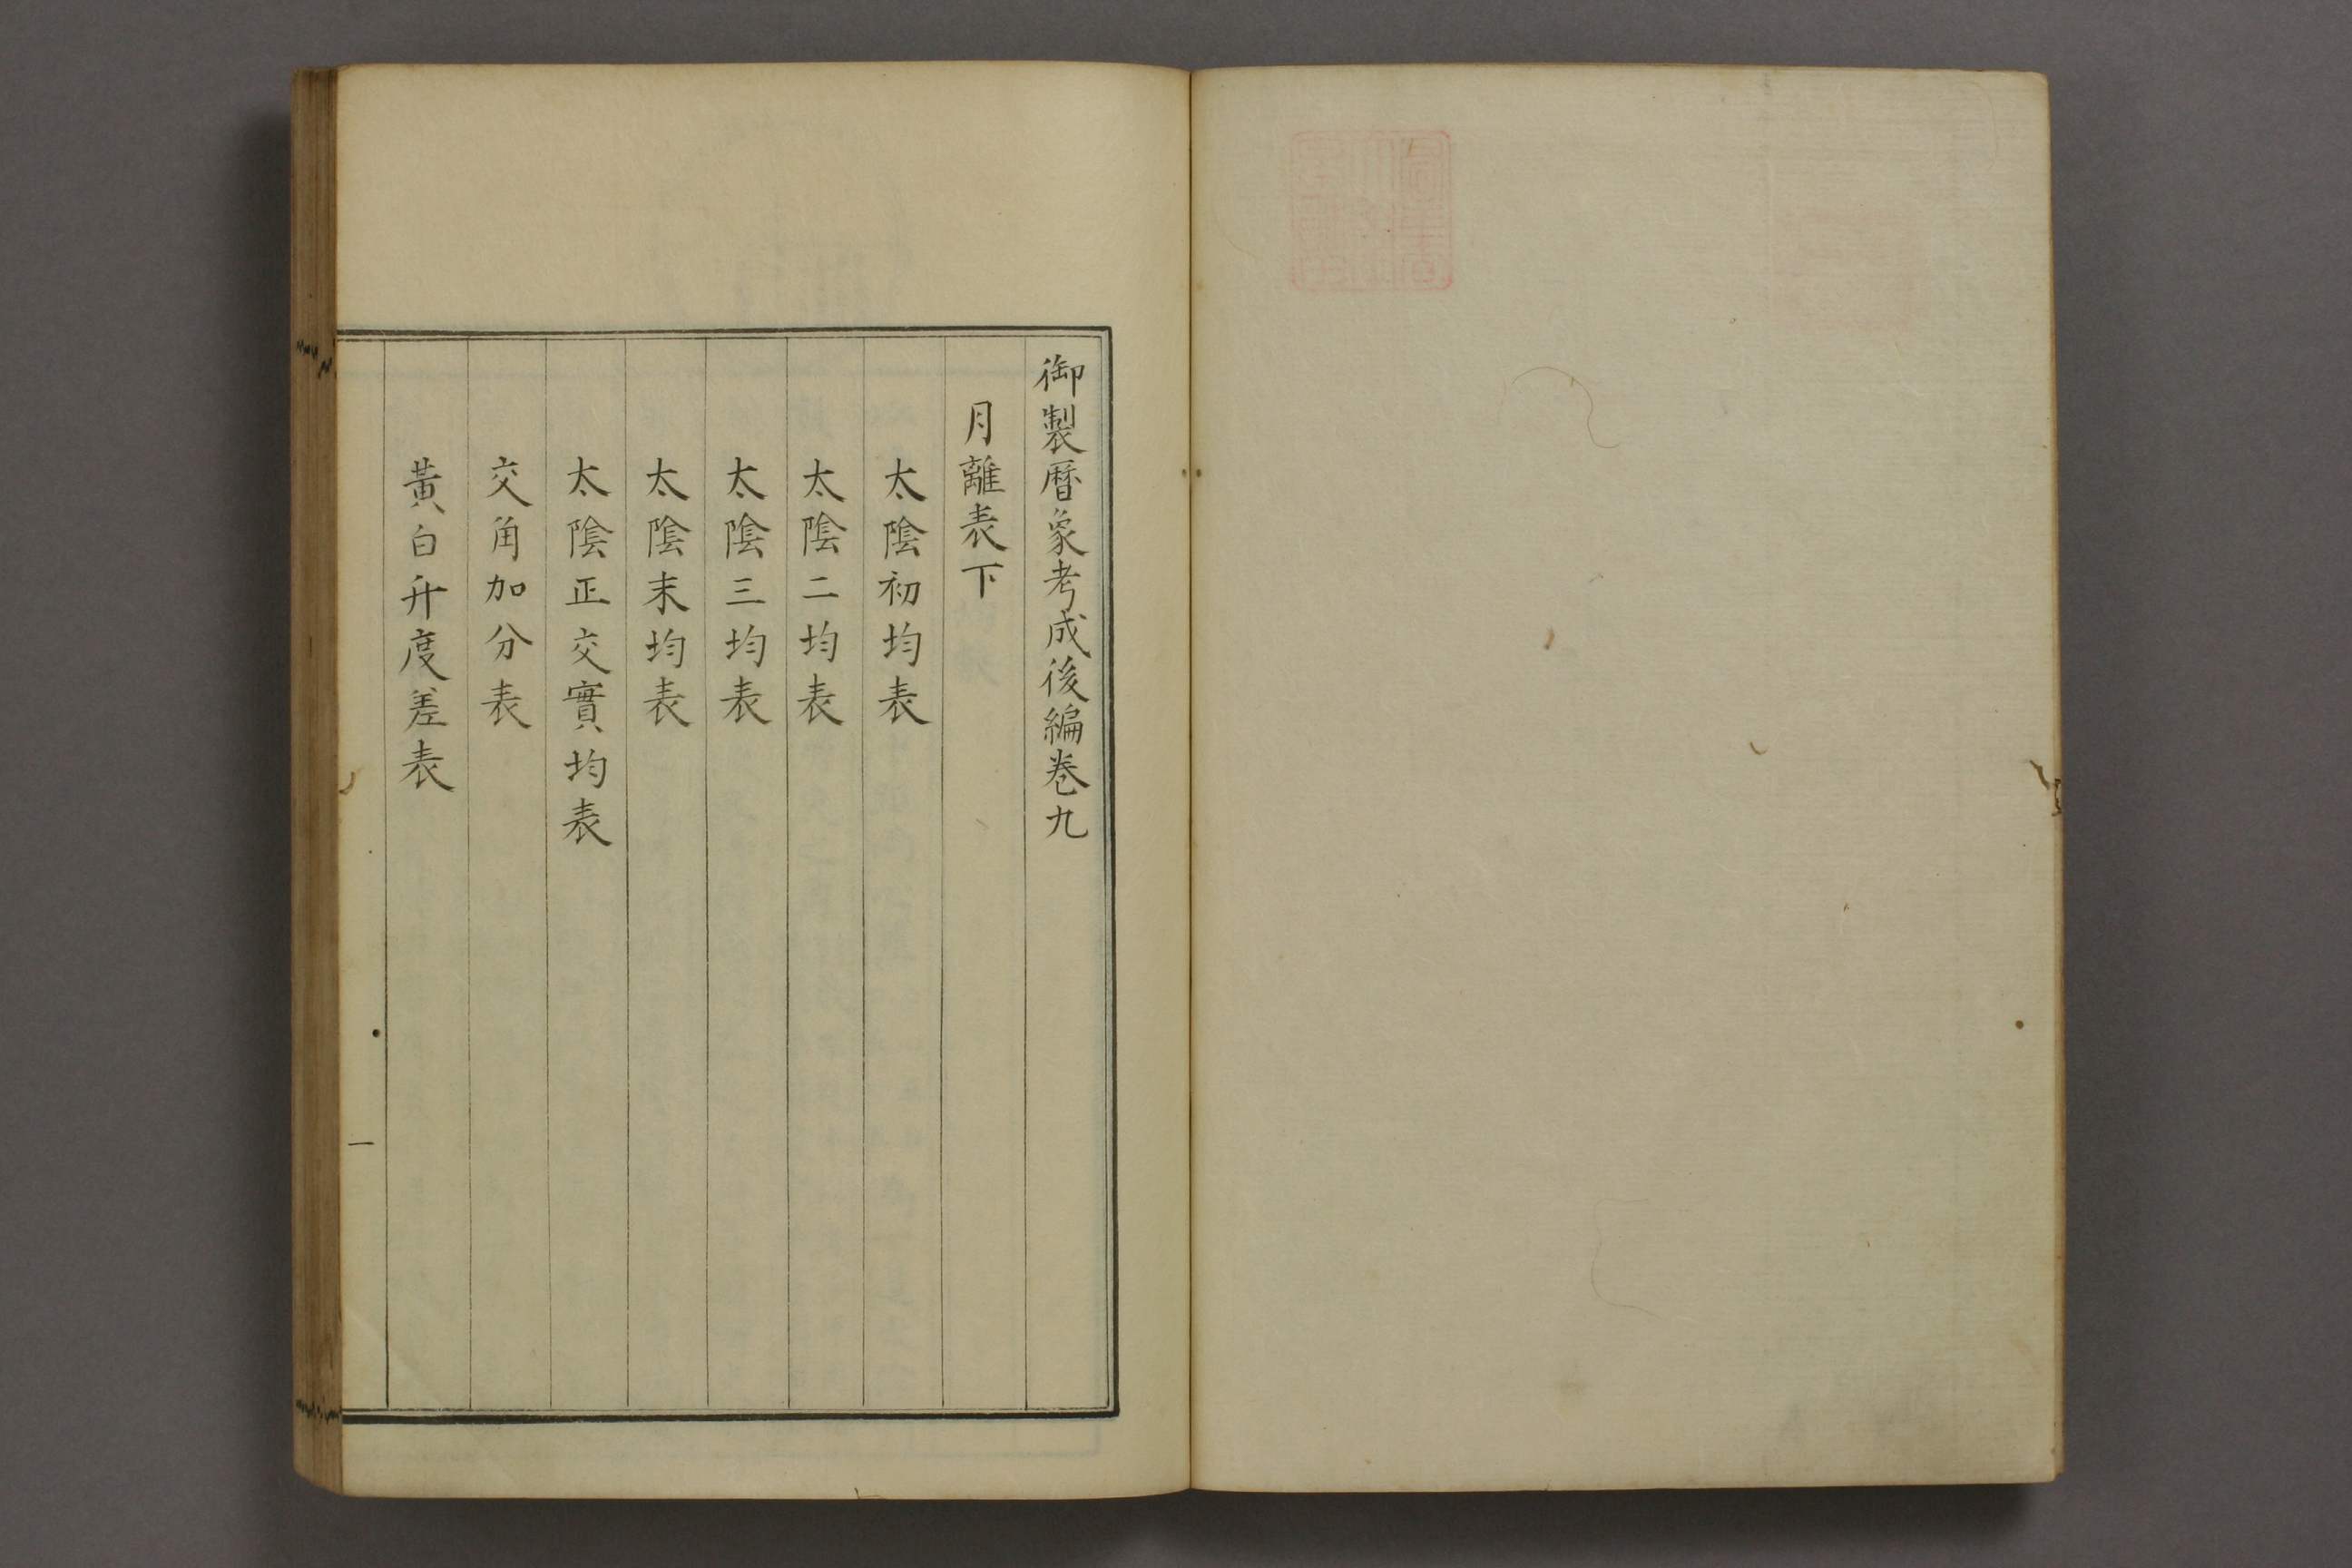 御製曆象考成後編卷九
月離表下
太陰初均表
太陰二均表
太陰三均表
太陰末均表
太陰正交實均表
交角加分表
黃白升度差表
一